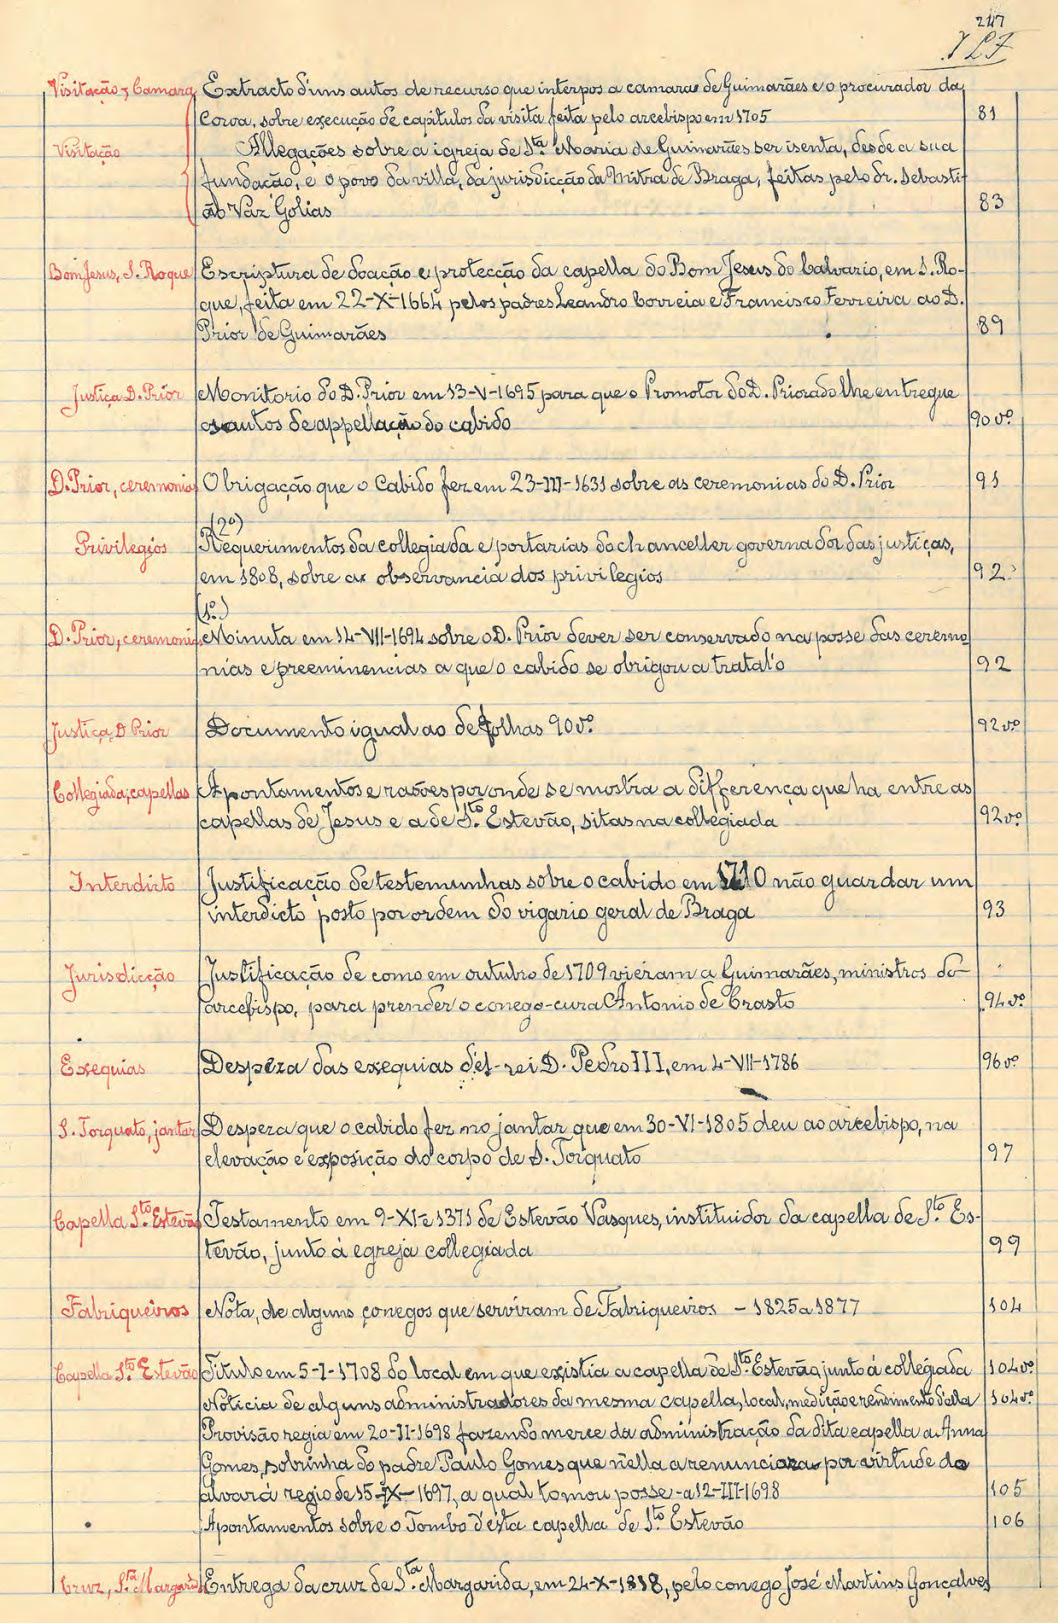 247
Visitação, Camara Extracto d'uns autos de recurso que interpos a camara de Guimarães e o procurador da
Coroa, sobre execução de capitulos da visita feita pelo arcebispo em 1705 81
Visitação Allegações sobre a igreja de Sta Maria de Guimarães ser isenta, desde a sua
fundação, e o povo da villa, da jurisdicção da Mitra de Braga, feitas pelo dr. Sebasti-
ão Vaz Golias 83
Bom Jesus, S. Roque Escriptura de doação e protecção da capella do Bom Jesus do Calvario, em S. Ro-
que, feita em 22-X-1664 pelos padres Leandro Correia e Francisco Ferreira ao D.
Prior de Guimarães 89
Justiça D. Prior Monitorio do D. Prior em 13-V-1695 para que o Promotor do D. Priorado lhe entregue
os autos de appellação do cabido 90 vº
D. Prior, ceremonias Obrigação que o Cabido fez em 23-III-1631 sobre as ceremonias do D. Prior 91
(2º)
Privilegios Requerimentos da collegiada e portarias do chanceller governador das justiças,
em 1808, sobre a observancia dos privilegios 92
(1º)
D. Prior, ceremonias Minuta em 14-VII-1694 sobre o D. Prior dever ser conservado na posse das ceremo-
nias e preeminencias a que o cabido se obrigou a tratal'o 92
Justiça, D Prior Documento igual ao de folhas 90 vº 92 vº
Collegiada, capellas Apontamentos e rasões por onde se mostra a differença que ha entre as
capellas de Jesus e a de Sto Estevão, sitas na collegiada 92 vº
Interdicto Justificação de testemunhas sobre o cabido em 1710 não guardar um
interdicto posto por ordem do vigario geral de Braga 93
Jurisdicção Justificação de como em outubro de 1709 vieram a Guimarães, ministros do
arcebispo, para prender o conego-cura Antonio de Crasto 94 vº
Exequias Despeza das exequias d'el-rei D. Pedro III, em 4-VII-1786 96 vº
S. Torquato, jantar Despeza que o cabido fez no jantar que em 30-VI-1805 deu ao arcebispo, na
elevação e exposição do corpo de S. Torquato 97
Capella Sto Estevão Testamento em 9-XI-e 1371 de Estevão Vasques, instituidor da capella de Sto Es-
tevão, junto á egreja collegiada 99
Fabriqueiros Nota, de alguns conegos que serviram de Fabriqueiros - 1825 a 1877 104
Capella Sto Estevão Titulo em 5-I-1708 do local em que existia a capella de Sto Estevão, junto á collegiada 104 vº
Noticia de alguns administradores da mesma capella, local, medição e rendimento d'ella 104 vº
Provisão regia em 20-II-1698 fazendo merce da administração da dita capella a Anna
Gomes, sobrinha do padre Paulo Gomes que n'ella a renunciara por virtude do
alvará regio de 15-IX-1697, a qual tomou posse a 12-III-1698 105
Apontamentos sobre o Tombo d'esta capella de Sto Estevão 106
Cruz, Sta Margarida Entrega da cruz de Sta Margarida, em 24-X-1818, pelo conego José Martins Gonçalves